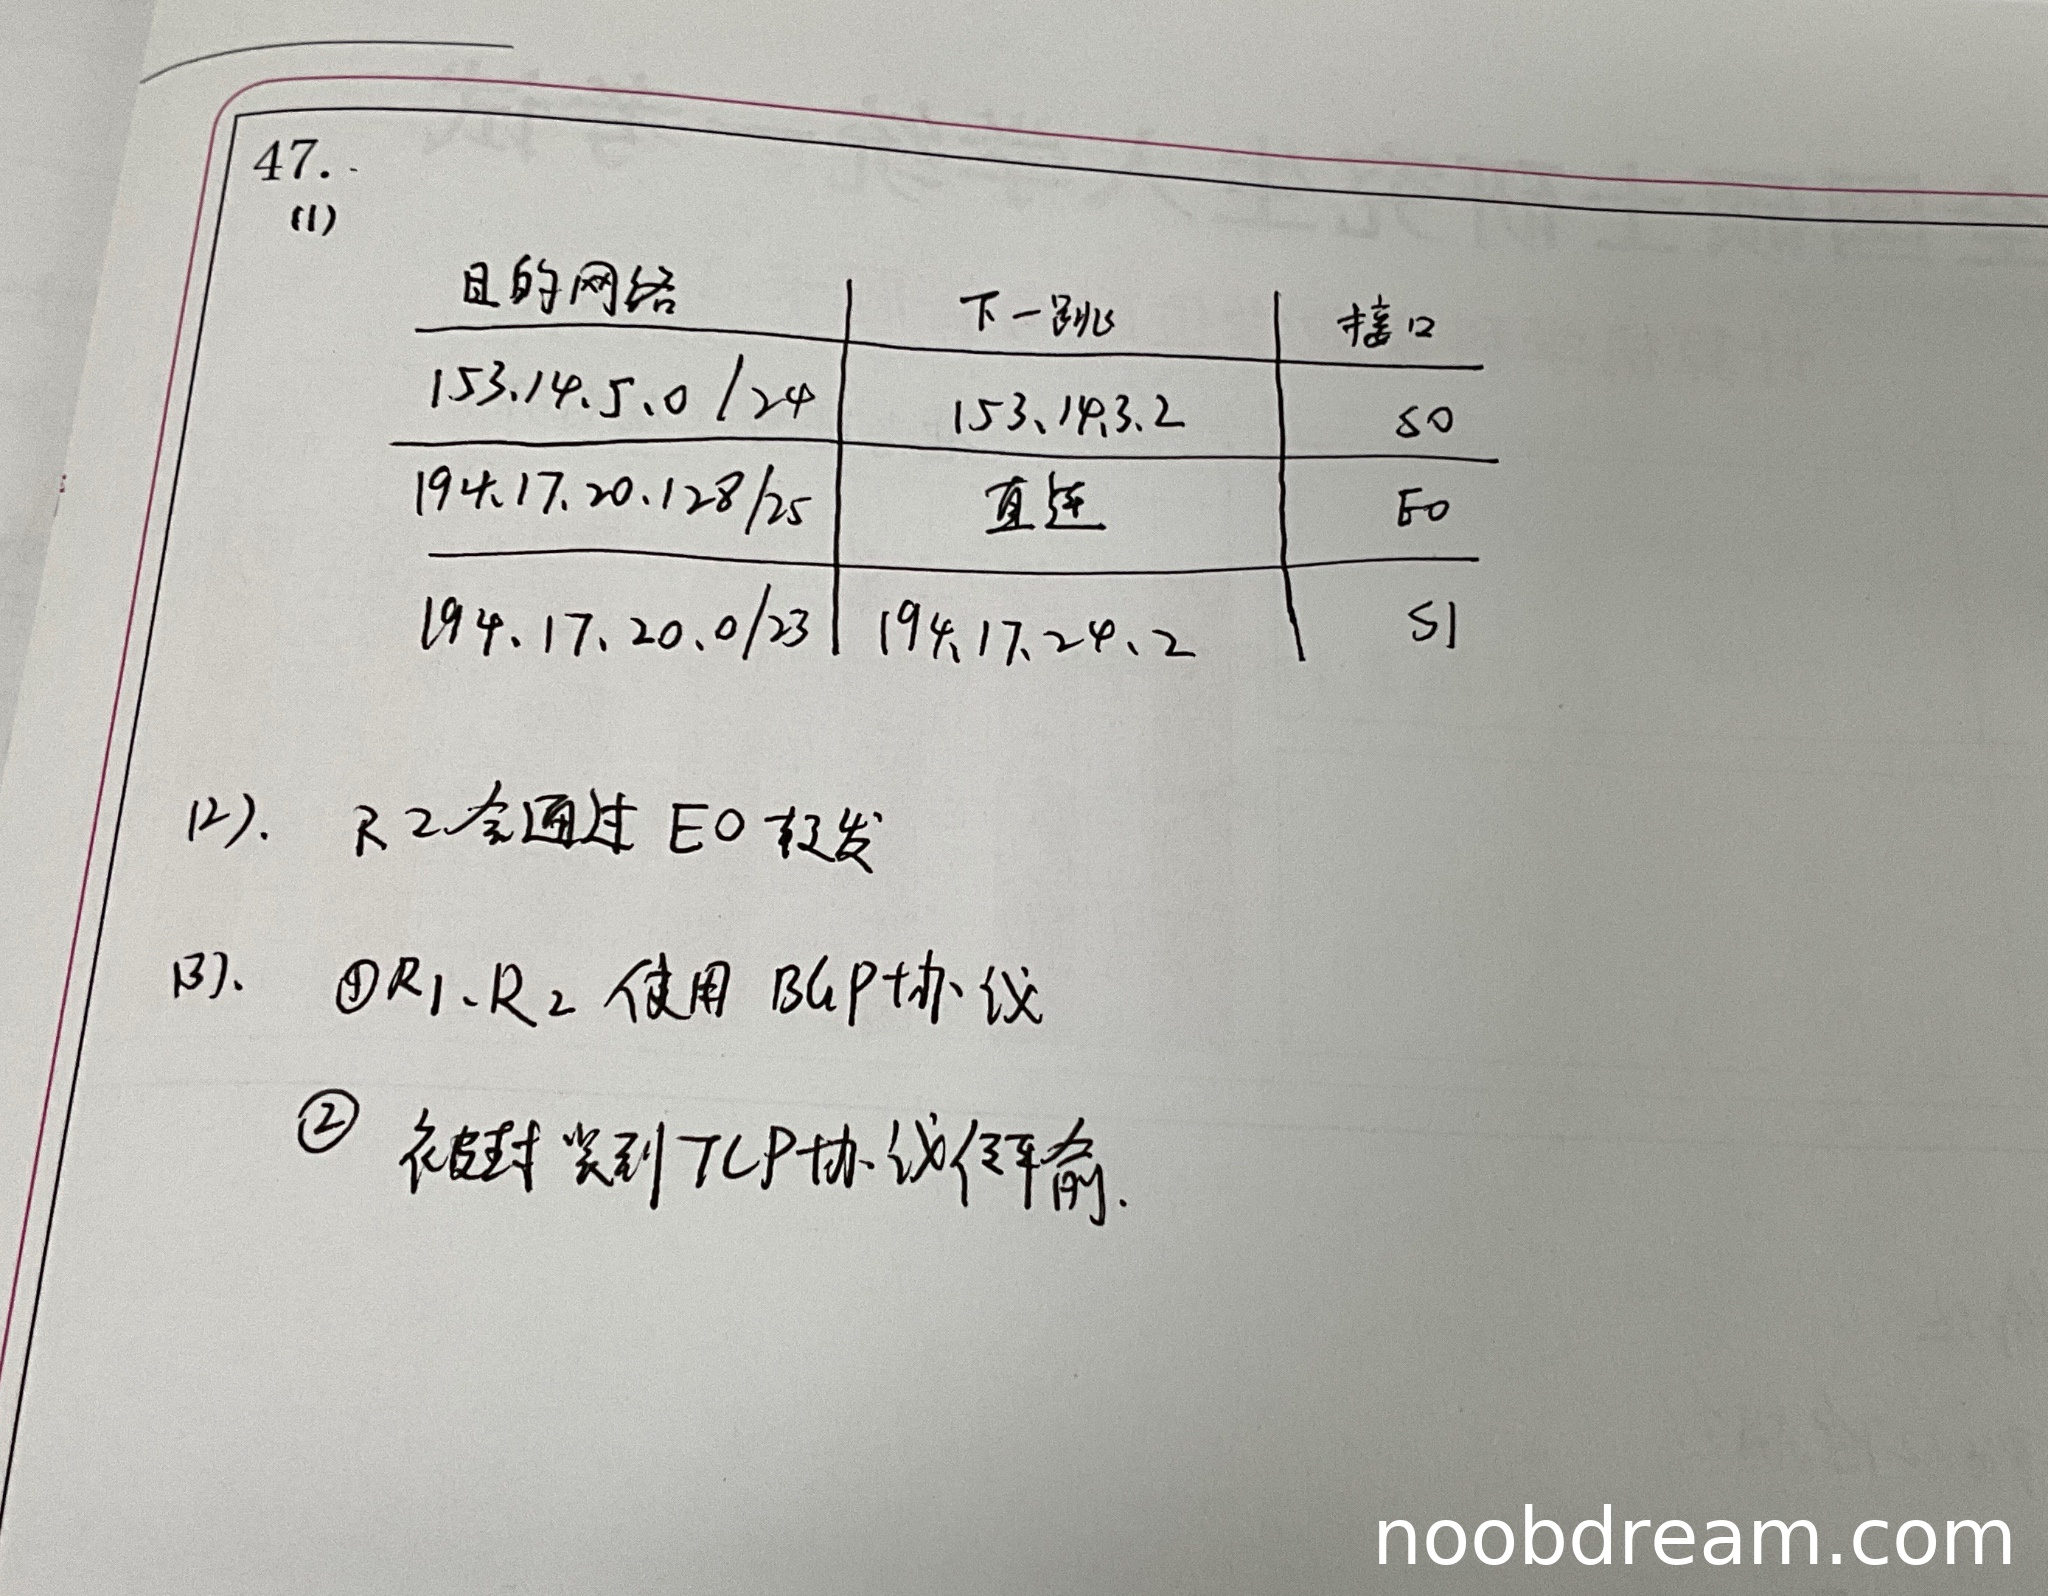 47.
(1)
目的网络 下一跳 接口
153.14.5.0 /24 153.14.3.2 S0
194.17.20.128/25 直连 E0
194.17.20.0/23 194.17.24.2 S1
(2). R2会通过 E0 转发
(3). ①R1、R2 使用 BGP协议
② 被封装到TCP协议传输.
noobdream.com